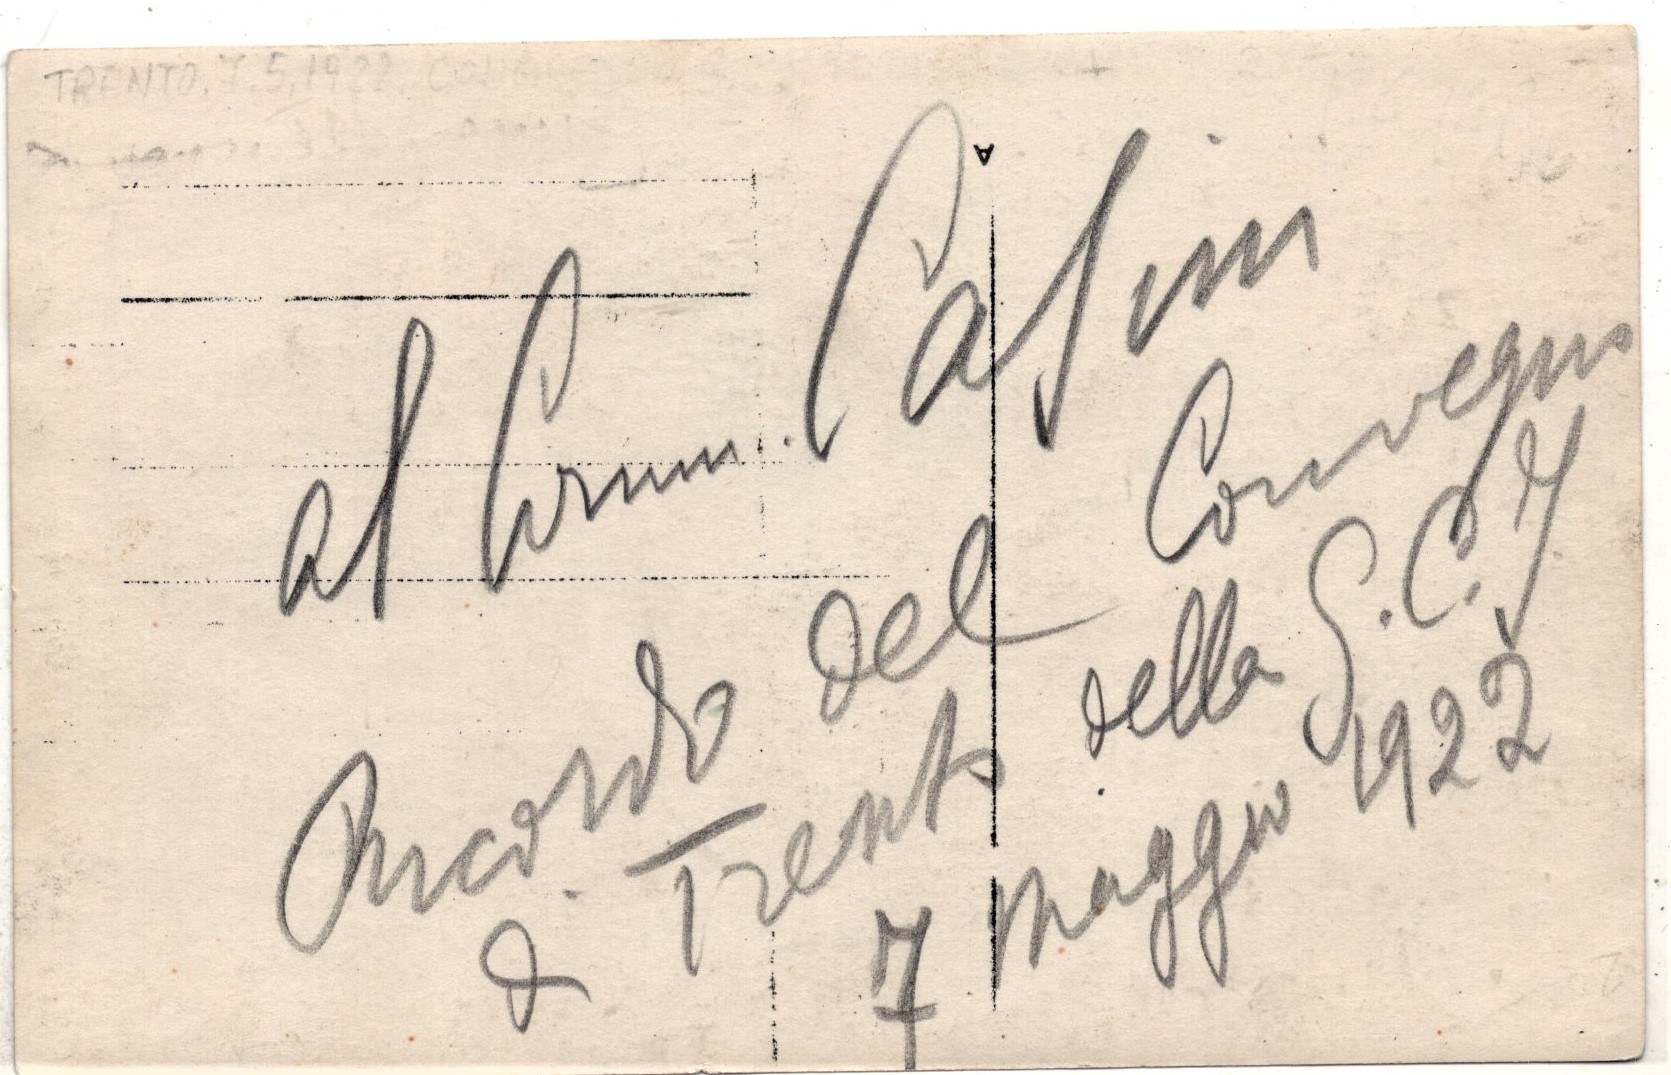 TRENTO. 7.5.1922.
al Comm. Casini
Ricordo del Convegno
di Trento della G.C.I.
7 Maggio 1922